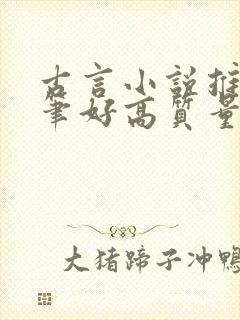 古言小说推
笔好高质量
大猪蹄子冲鸭